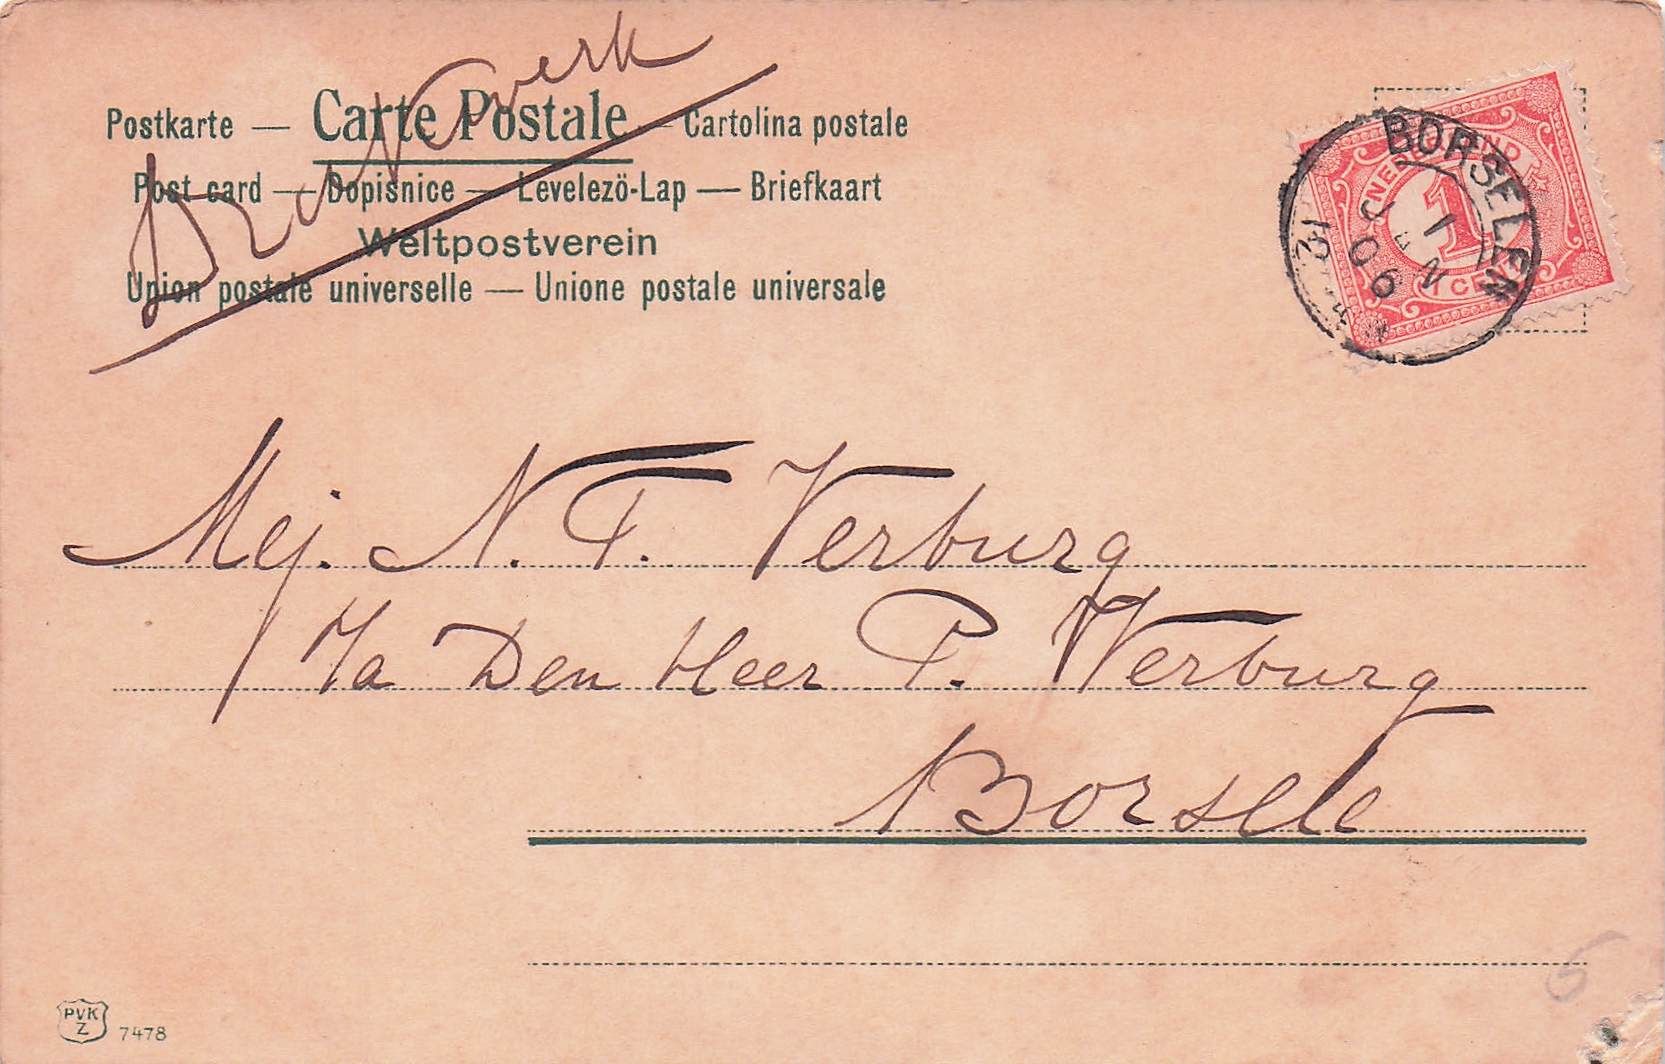 Drukwerk
Postkarte — Carte Postale — Cartolina postale
Post card — Dopisnice — Levelező-Lap — Briefkaart
Weltpostverein
Union postale universelle — Unione postale universale
NEDERLAND
1
1 CENT
BORSELEN
1 JAN 06
Mej. N. F. Verburg
p/a Den Heer P. Verburg
Borsele
PVK
Z
7478
5